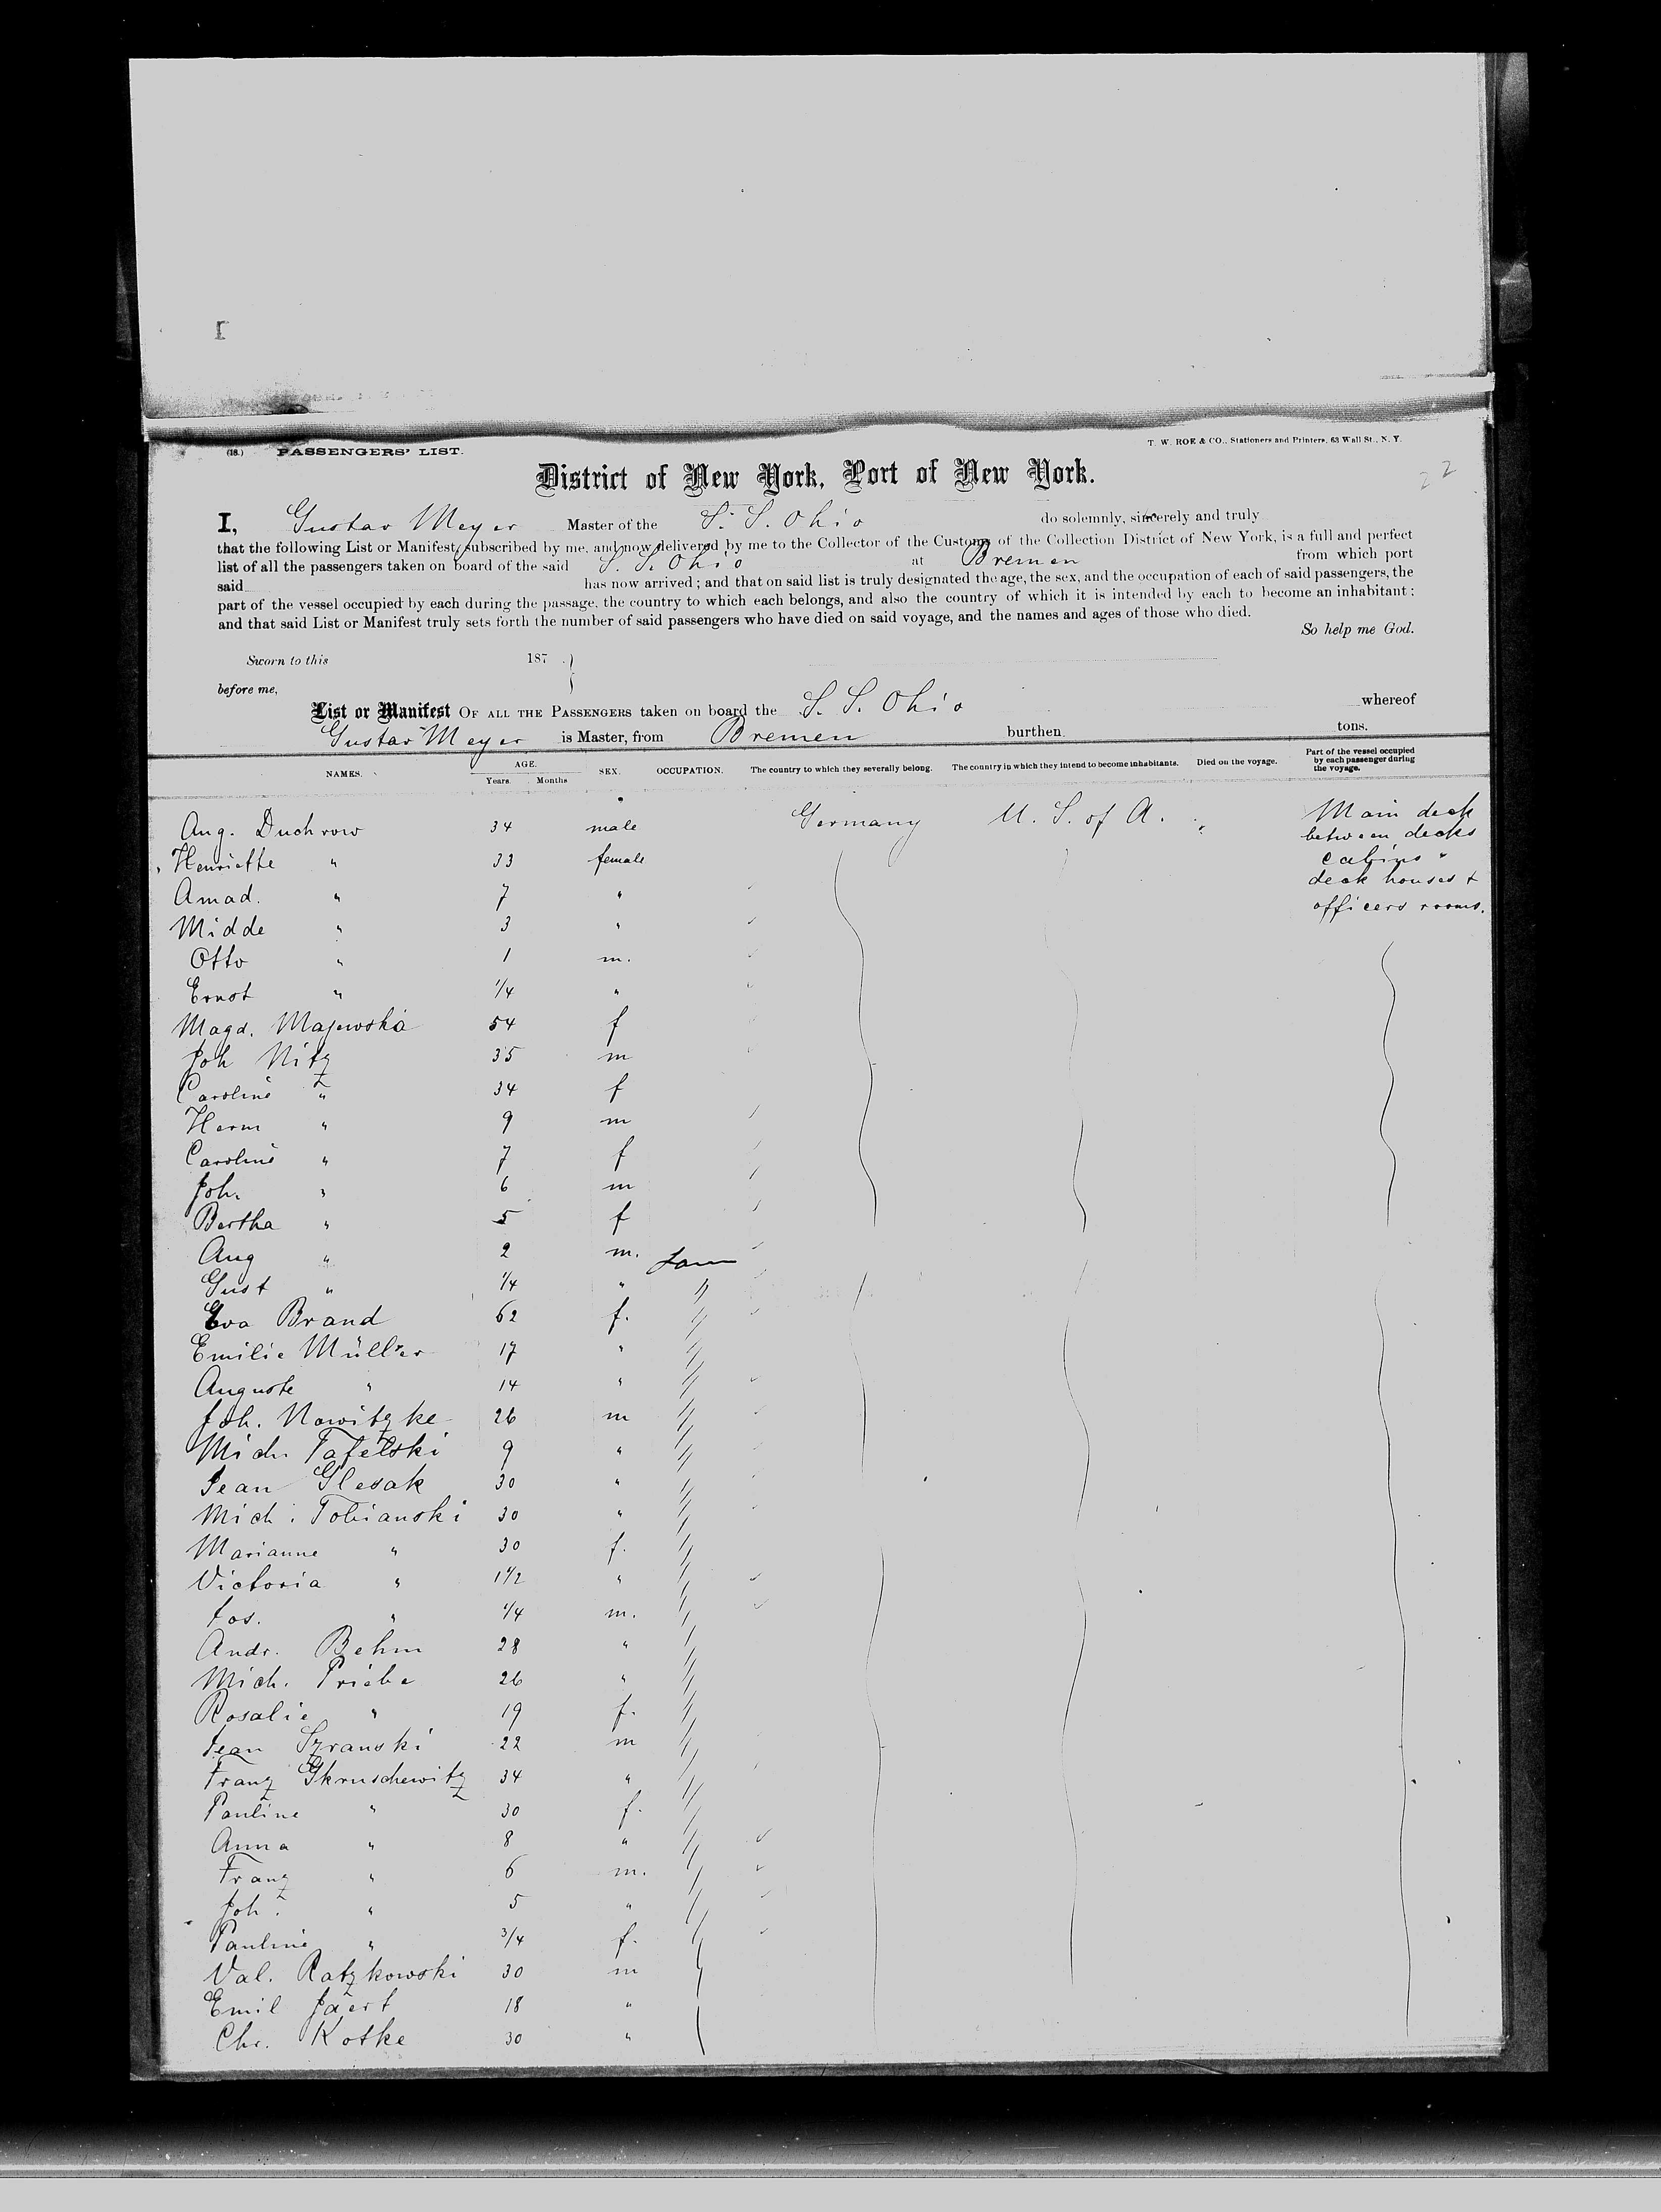 I
(18.) PASSENGERS' LIST. T. W. ROE & CO., Stationers and Printers, 63 Wall St., N. Y.
District of New York, Port of New York. 22
I, Gustav Meyer Master of the S. S. Ohio do solemnly, sincerely and truly
that the following List or Manifest, subscribed by me, and now delivered by me to the Collector of the Customs of the Collection District of New York, is a full and perfect
list of all the passengers taken on board of the said S. S. Ohio at Bremen from which port
said has now arrived; and that on said list is truly designated the age, the sex, and the occupation of each of said passengers, the
part of the vessel occupied by each during the passage, the country to which each belongs, and also the country of which it is intended by each to become an inhabitant;
and that said List or Manifest truly sets forth the number of said passengers who have died on said voyage, and the names and ages of those who died.
So help me God.
Sworn to this 187
before me,
List or Manifest OF ALL THE PASSENGERS taken on board the S. S. Ohio whereof
Gustav Meyer is Master, from Bremen burthen tons.
NAMES. AGE. Years. Months SEX. OCCUPATION. The country to which they severally belong. The country in which they intend to become inhabitants. Died on the voyage. Part of the vessel occupied by each passenger during the voyage.
Aug. Duchrow 34 male Germany U. S. of A. Main deck
between decks
Henriette " 33 female cabins "
deck houses +
Amad. " 7 " officers rooms.
Midde " 3 "
Otto " 1 m.
Ernst " 1/4 "
Magd. Majewska 54 f
Joh Nitz 35 m
Caroline " 34 f
Herm " 9 m
Caroline " 7 f
Joh. " 6 m
Bertha " 5 f
Aug " 2 m.
Gust " 1/4 "
Eva Brand 62 f.
Emilie Müller 17 "
Auguste " 14 "
Joh. Nowitzke 26 m
Mich. Tafelski 9 "
Jean Glesak 30 "
Mich. Tobianski 30 "
Marianne " 30 f.
Victoria " 1 1/2 "
Jos. " 1/4 m.
Andr. Behm 28 "
Mich. Priebe 26 "
Rosalie " 19 f.
Jean Szranski 22 m
Franz Gkruschewitz 34 "
Pauline " 30 f.
Anna " 8 "
Franz " 6 m.
Joh. " 5 "
Pauline " 3/4 f.
Val. Ratzkowski 30 m
Emil Jaert 18 "
Chr. Kotke 30 "